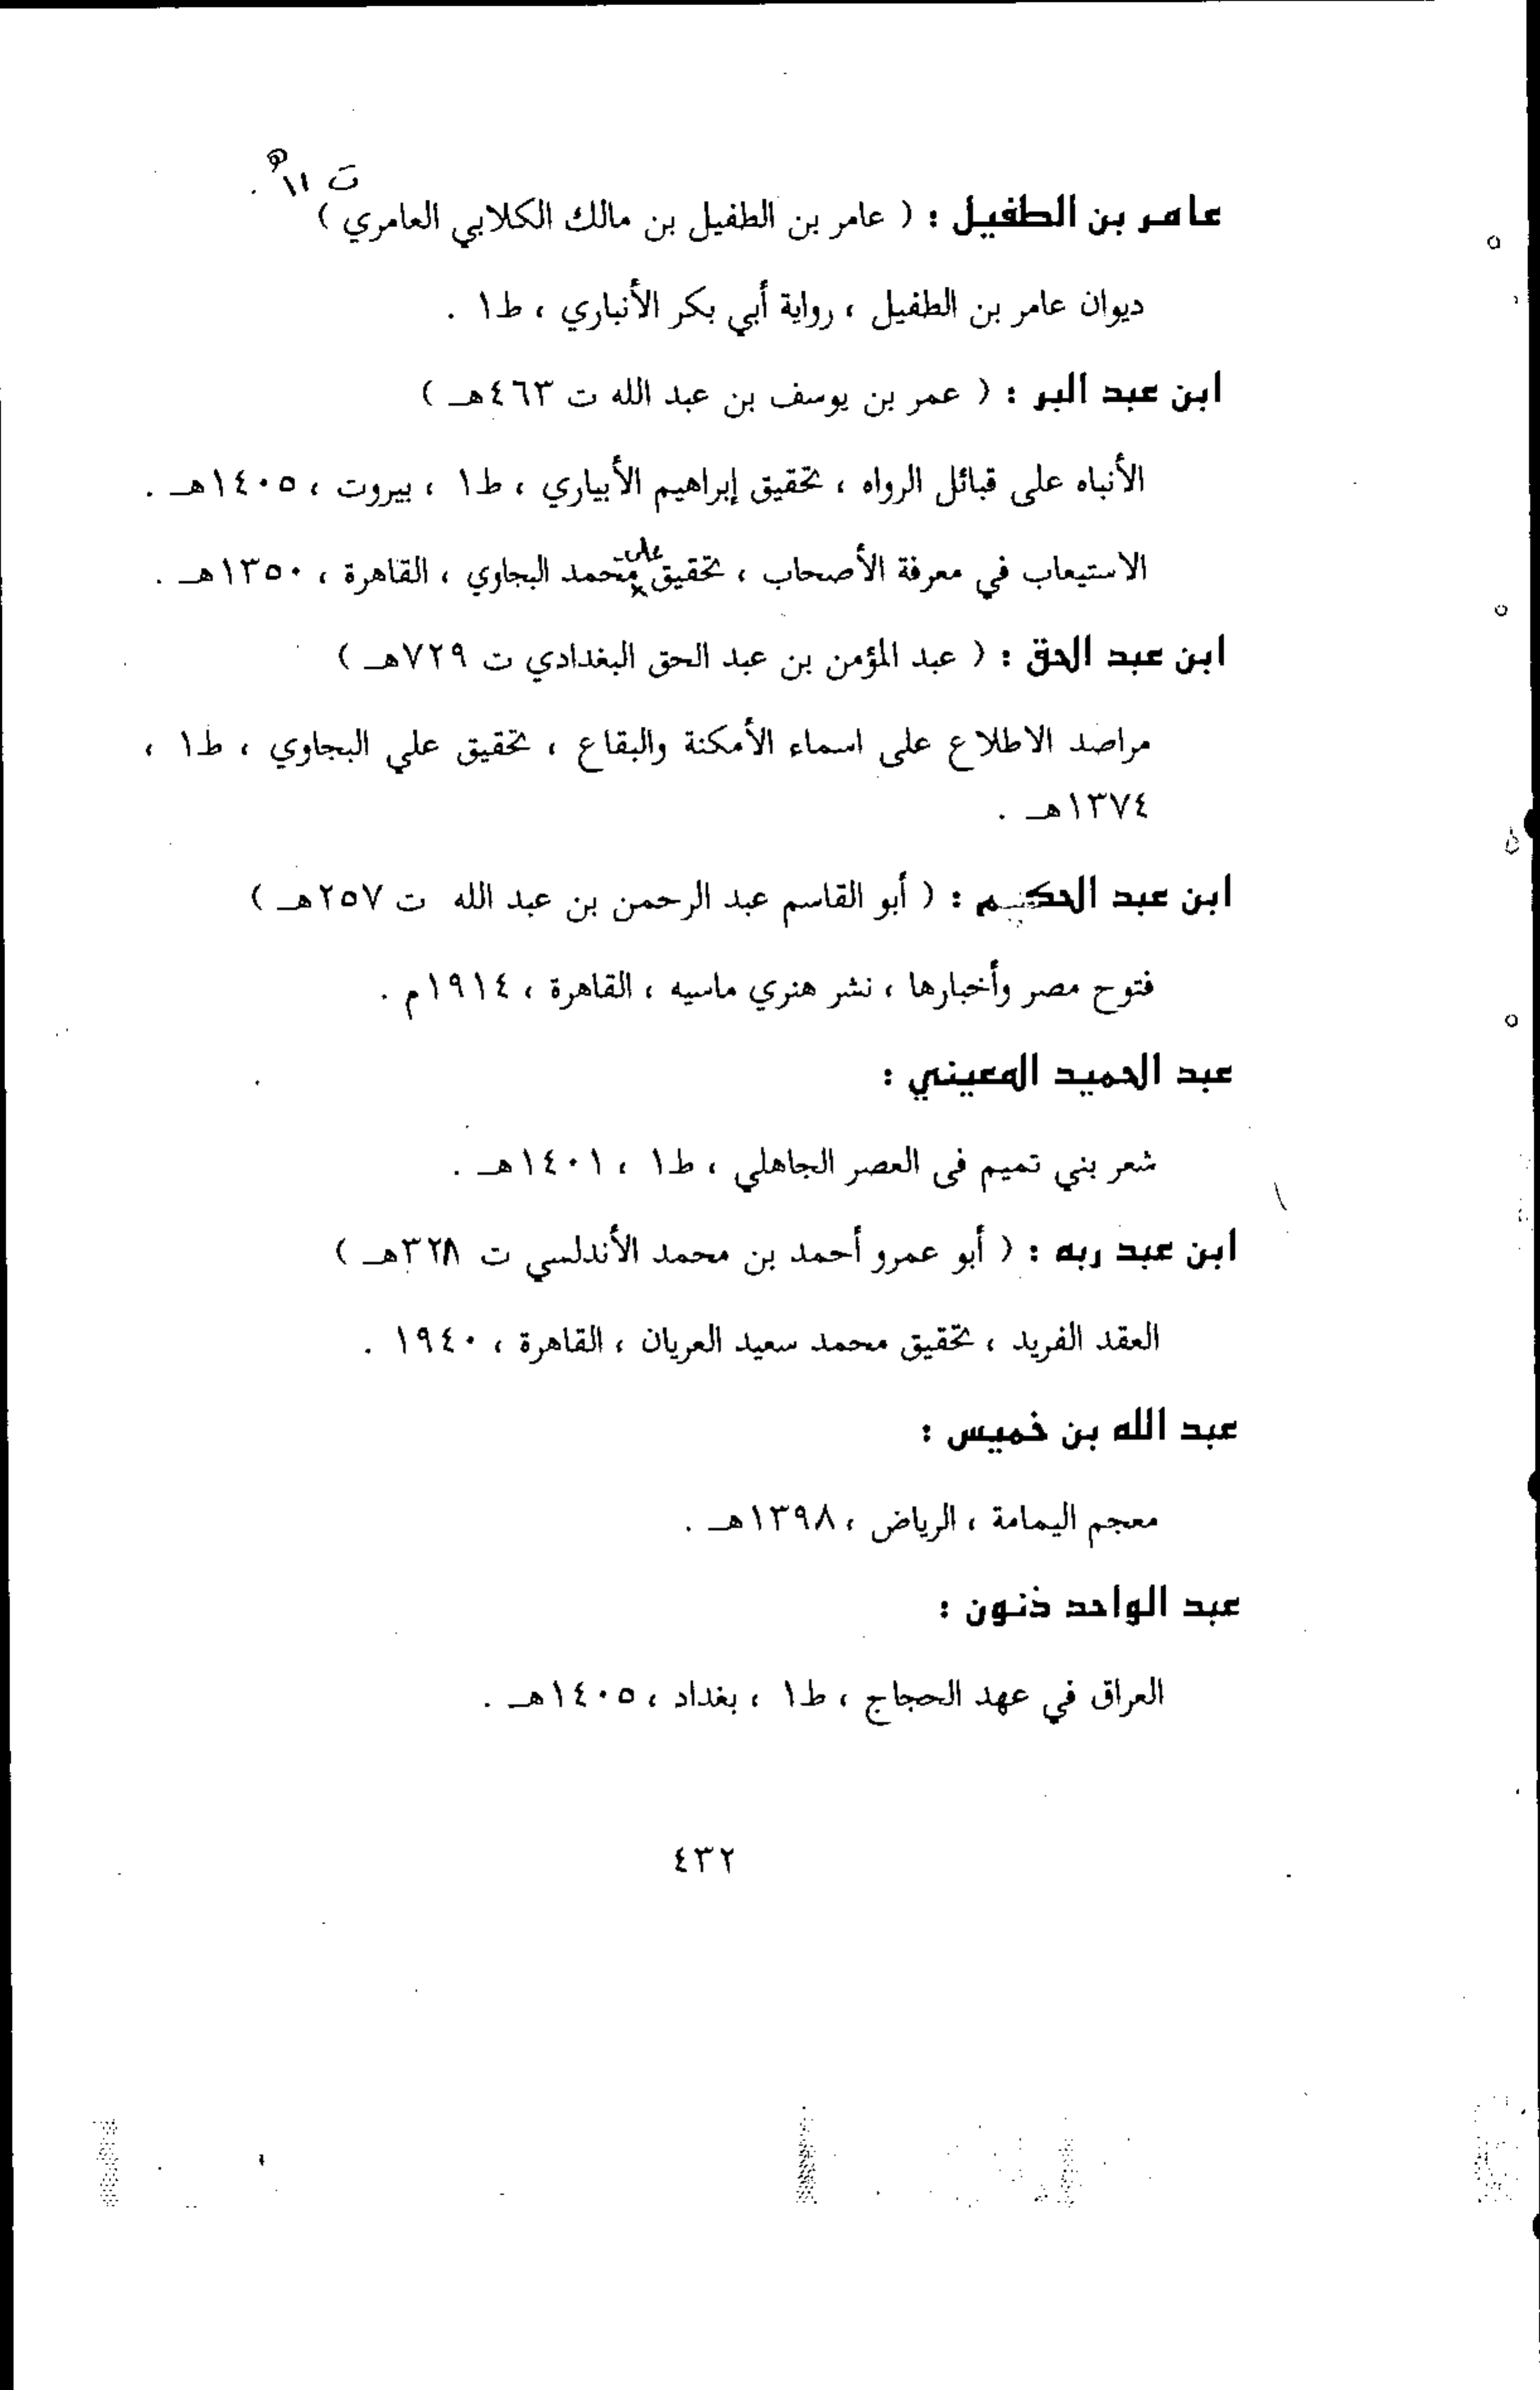 ت ١١هـ
عامر بن الطفيل : ( عامر بن الطفيل بن مالك الكلابي العامري )
ديوان عامر بن الطفيل ، رواية أبي بكر الأنباري ، ط١ .
ابن عبد البر : ( عمر بن يوسف بن عبد الله ت ٤٦٣هـ )
الأنباه على قبائل الرواه ، تحقيق إبراهيم الأبياري ، ط١ ، بيروت ، ١٤٠٥هـ .
علي
الاستيعاب في معرفة الأصحاب ، تحقيق محمد البجاوي ، القاهرة ، ١٣٥٠هـ .
ابن عبد الحق : ( عبد المؤمن بن عبد الحق البغدادي ت ٧٢٩هـ )
مراصد الاطلاع على اسماء الأمكنة والبقاع ، تحقيق علي البجاوي ، ط١ ،
١٣٧٤هـ .
ابن عبد الحكم : ( أبو القاسم عبد الرحمن بن عبد الله ت ٢٥٧هـ )
فتوح مصر وأخبارها ، نشر هنري ماسيه ، القاهرة ، ١٩١٤م .
عبد الحميد المعيني :
شعر بني تميم فى العصر الجاهلي ، ط١ ، ١٤٠١هـ .
ابن عبد ربه : ( أبو عمرو أحمد بن محمد الأندلسي ت ٣٢٨هـ )
العقد الفريد ، تحقيق محمد سعيد العريان ، القاهرة ، ١٩٤٠ .
عبد الله بن خميس :
معجم اليمامة ، الرياض ، ١٣٩٨هـ .
عبد الواحد ذنون :
العراق في عهد الحجاج ، ط١ ، بغداد ، ١٤٠٥هـ .
٤٣٢